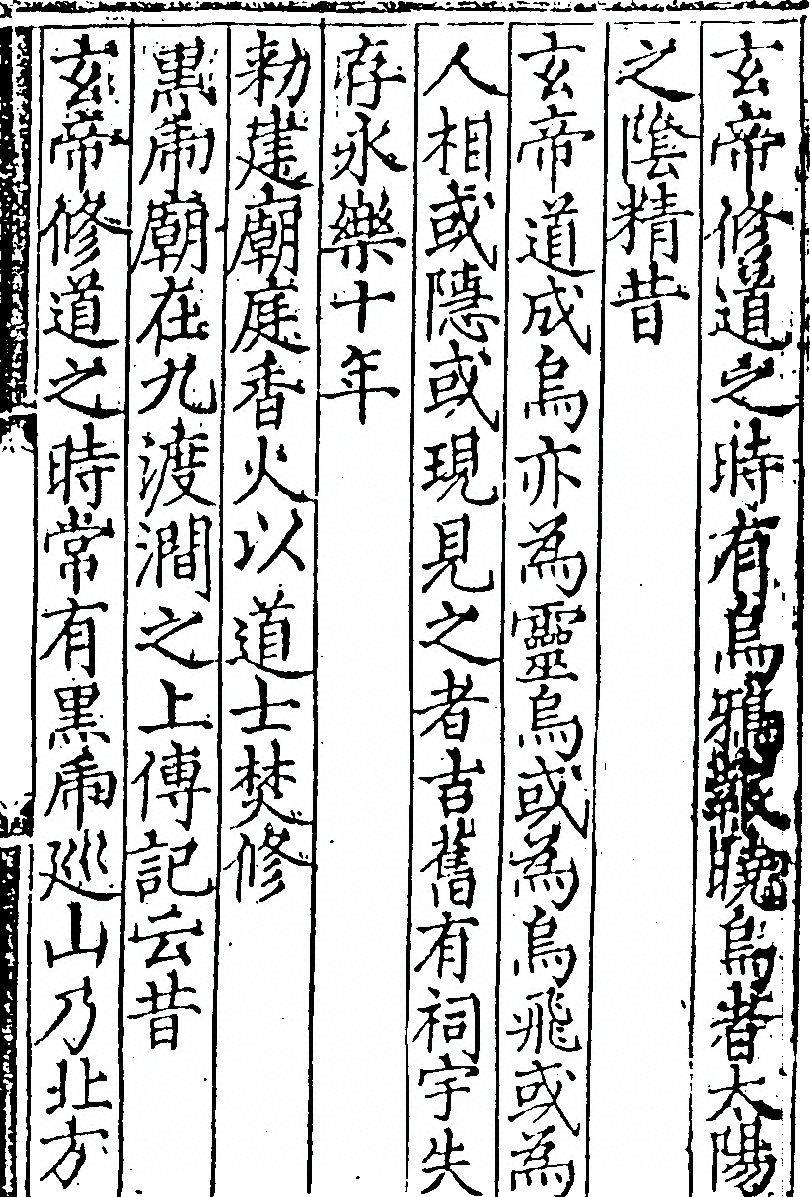 玄帝修道之時有烏鴉報曉烏者太陽
之陰精昔
玄帝道成烏亦為靈烏或為烏飛或為
人相或隱或現見之者吉舊有祠宇失
存永樂十年
勑建廟庭香火以道士焚修
黑虎廟在九渡澗之上傳記云昔
玄帝修道之時常有黑虎廵山乃北方